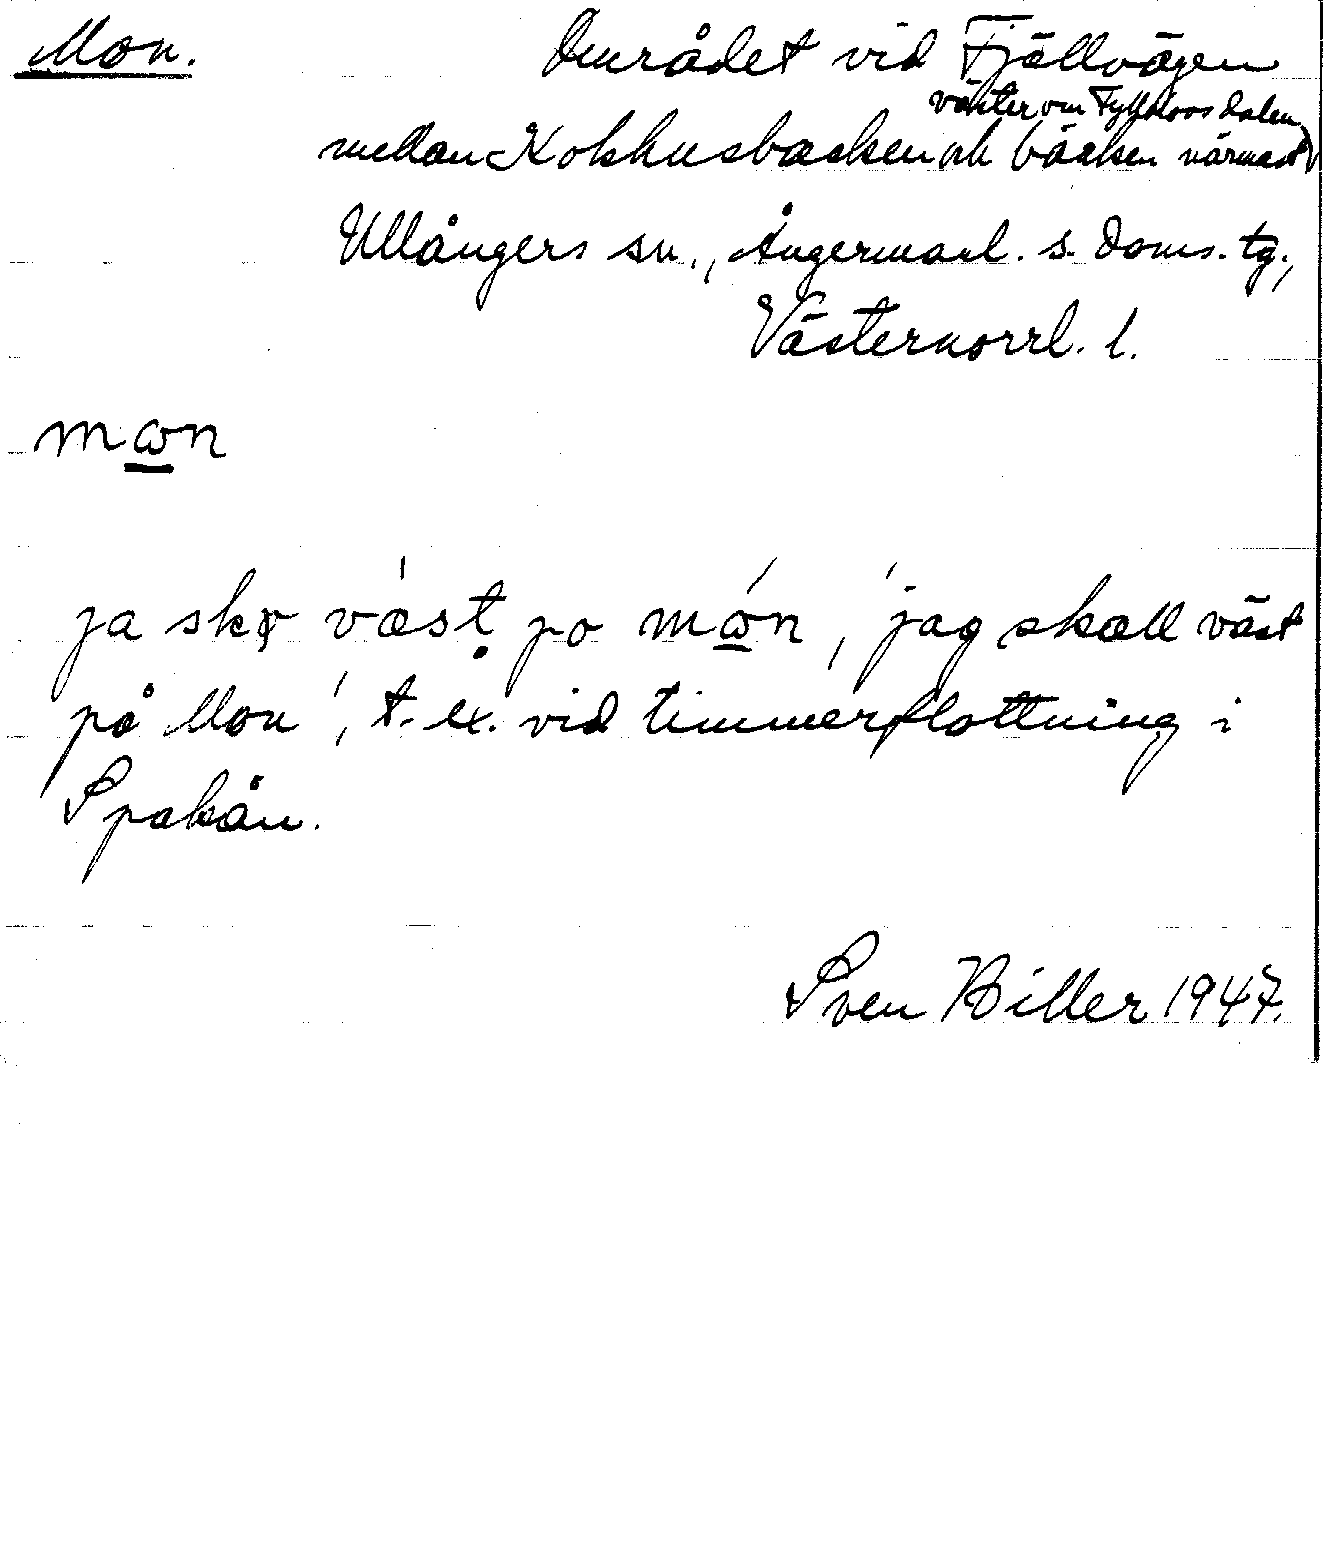 Mon. Området vid Fjällvägen
väster om Fylldoosdalen
mellan Kokhusbacken och bäcken närmast
Ullångers sn., Ångermanl. s. doms. tg.,
Västernorrl. l.
mωn
ja skɷ væsṭ po mωn, 'jag skall väst
på Mon', t. ex. vid timmerflottning i
Spakån.
Sven Biller 1947.